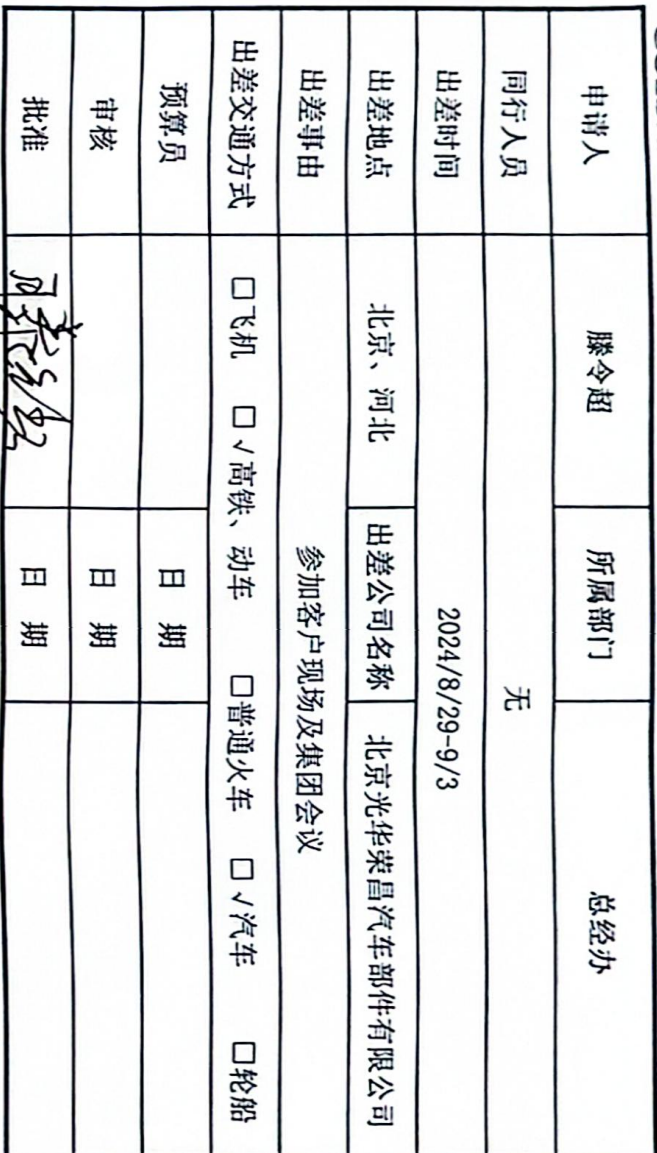 申请人 滕令超 所属部门 总经办
同行人员 无
出差时间 2024/8/29-9/3
出差地点 北京、河北 出差公司名称 北京光华荣昌汽车部件有限公司
出差事由 参加客户现场及集团会议
出差交通方式 □飞机 □√高铁、动车 □普通火车 □√汽车 □轮船
预算员 日 期
审核 日 期
批准 日 期